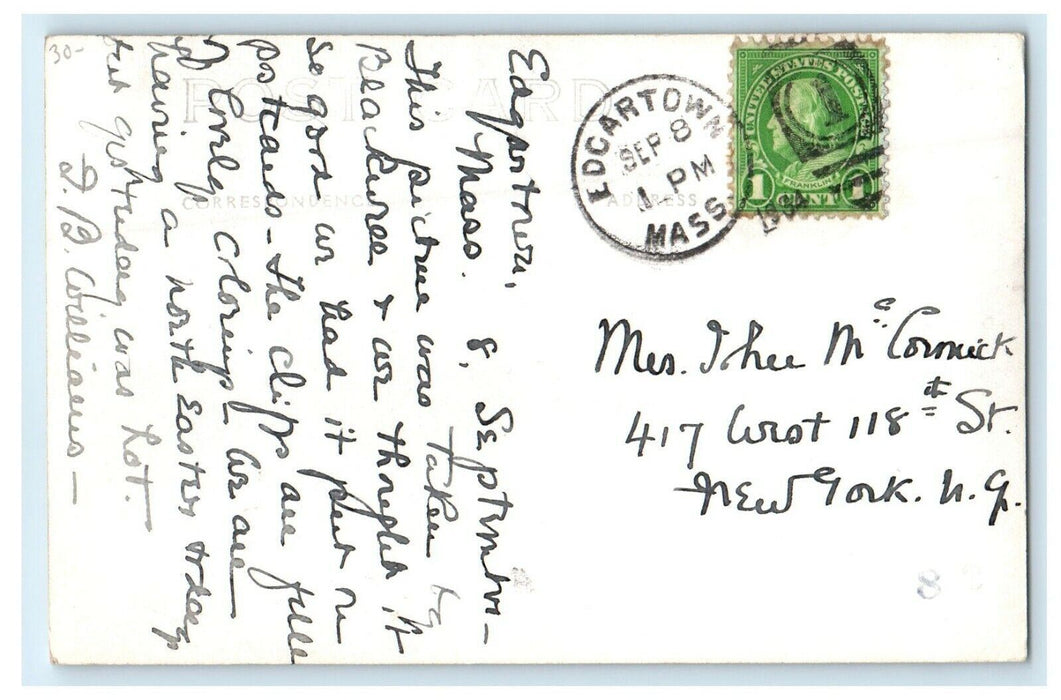 30-
POST CARD
CORRESPONDENCE
ADDRESS
Edgartown,
Mass. 8, September
This picture was taken by
Blackence & we thought it
so good we had it put on
postcards - The cliffs are full
of lovely colorings - We are
having a north Easter today
but yesterday was hot.
D. B. Williams -
EDGARTOWN
SEP 8
1 PM
MASS.
UNITED STATES POSTAGE
FRANKLIN
1 CENT 1
Mrs. McCormick
417 West 118th St.
New York. N.Y.
8